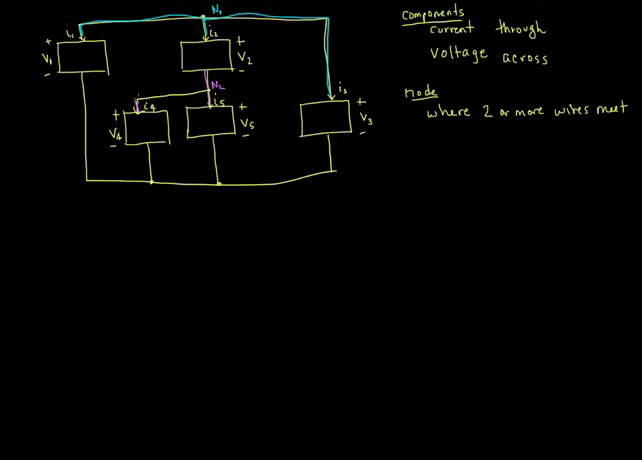 N1
i1
i2
+
V1
-
+
V2
-
N2
i4
i5
i3
+
V4
-
+
V5
-
+
V3
-
Components
current through
Voltage across
node
where 2 or more wires meet